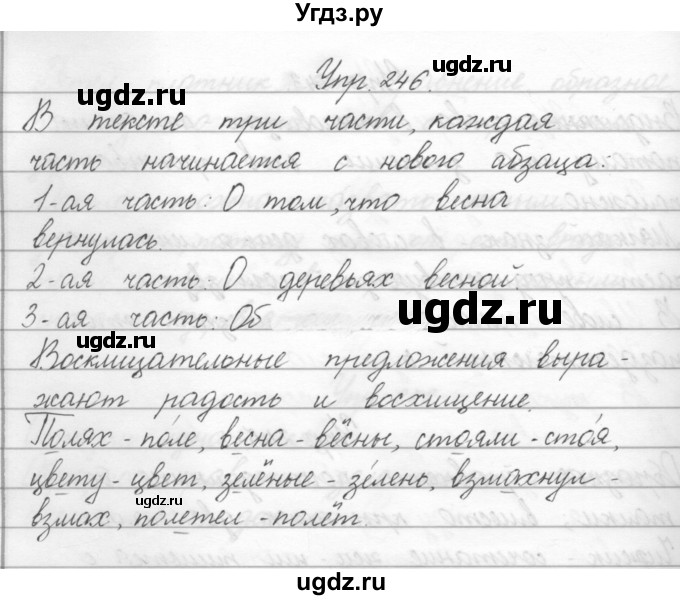 Угдз.ру
Упр. 246.
ugdz.ru
ugdz.ru
В тексте три части, каждая
часть начинается с нового абзаца:
1-ая часть: О том, что весна
вернулась.
2-ая часть: О деревьях весной
3-ая часть: Об
ugdz.ru
ugdz.ru
Восклицательные предложения выра-
жают радость и восхищение.
Полях - по́ле, весна - вёсны, стояли - сто́я,
цвету - цвет, зелёные - зе́лень, взмахнул -
взмах, полетел - полёт
ugdz.ru
ugdz.ru
ugdz.ru